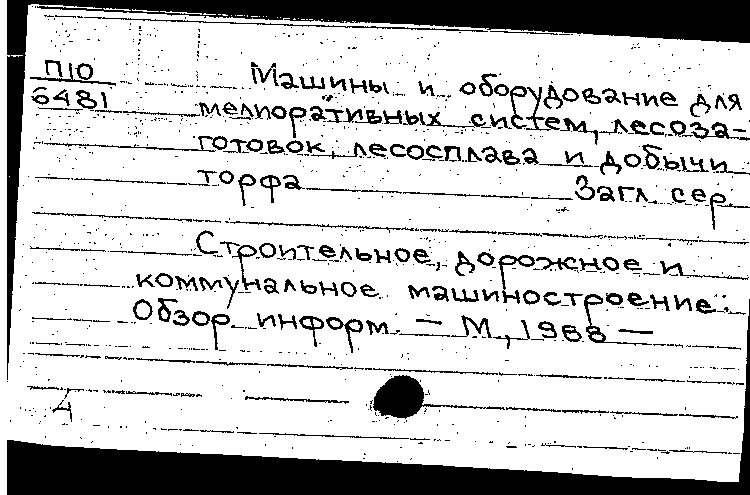 П10
6481
Машины и оборудование для
мелиоративных систем, лесоза-
готовок, лесосплава и добычи
торфа Загл. сер.
Строительное, дорожное и
коммунальное машиностроение:
Обзор. информ. — М., 1988 —